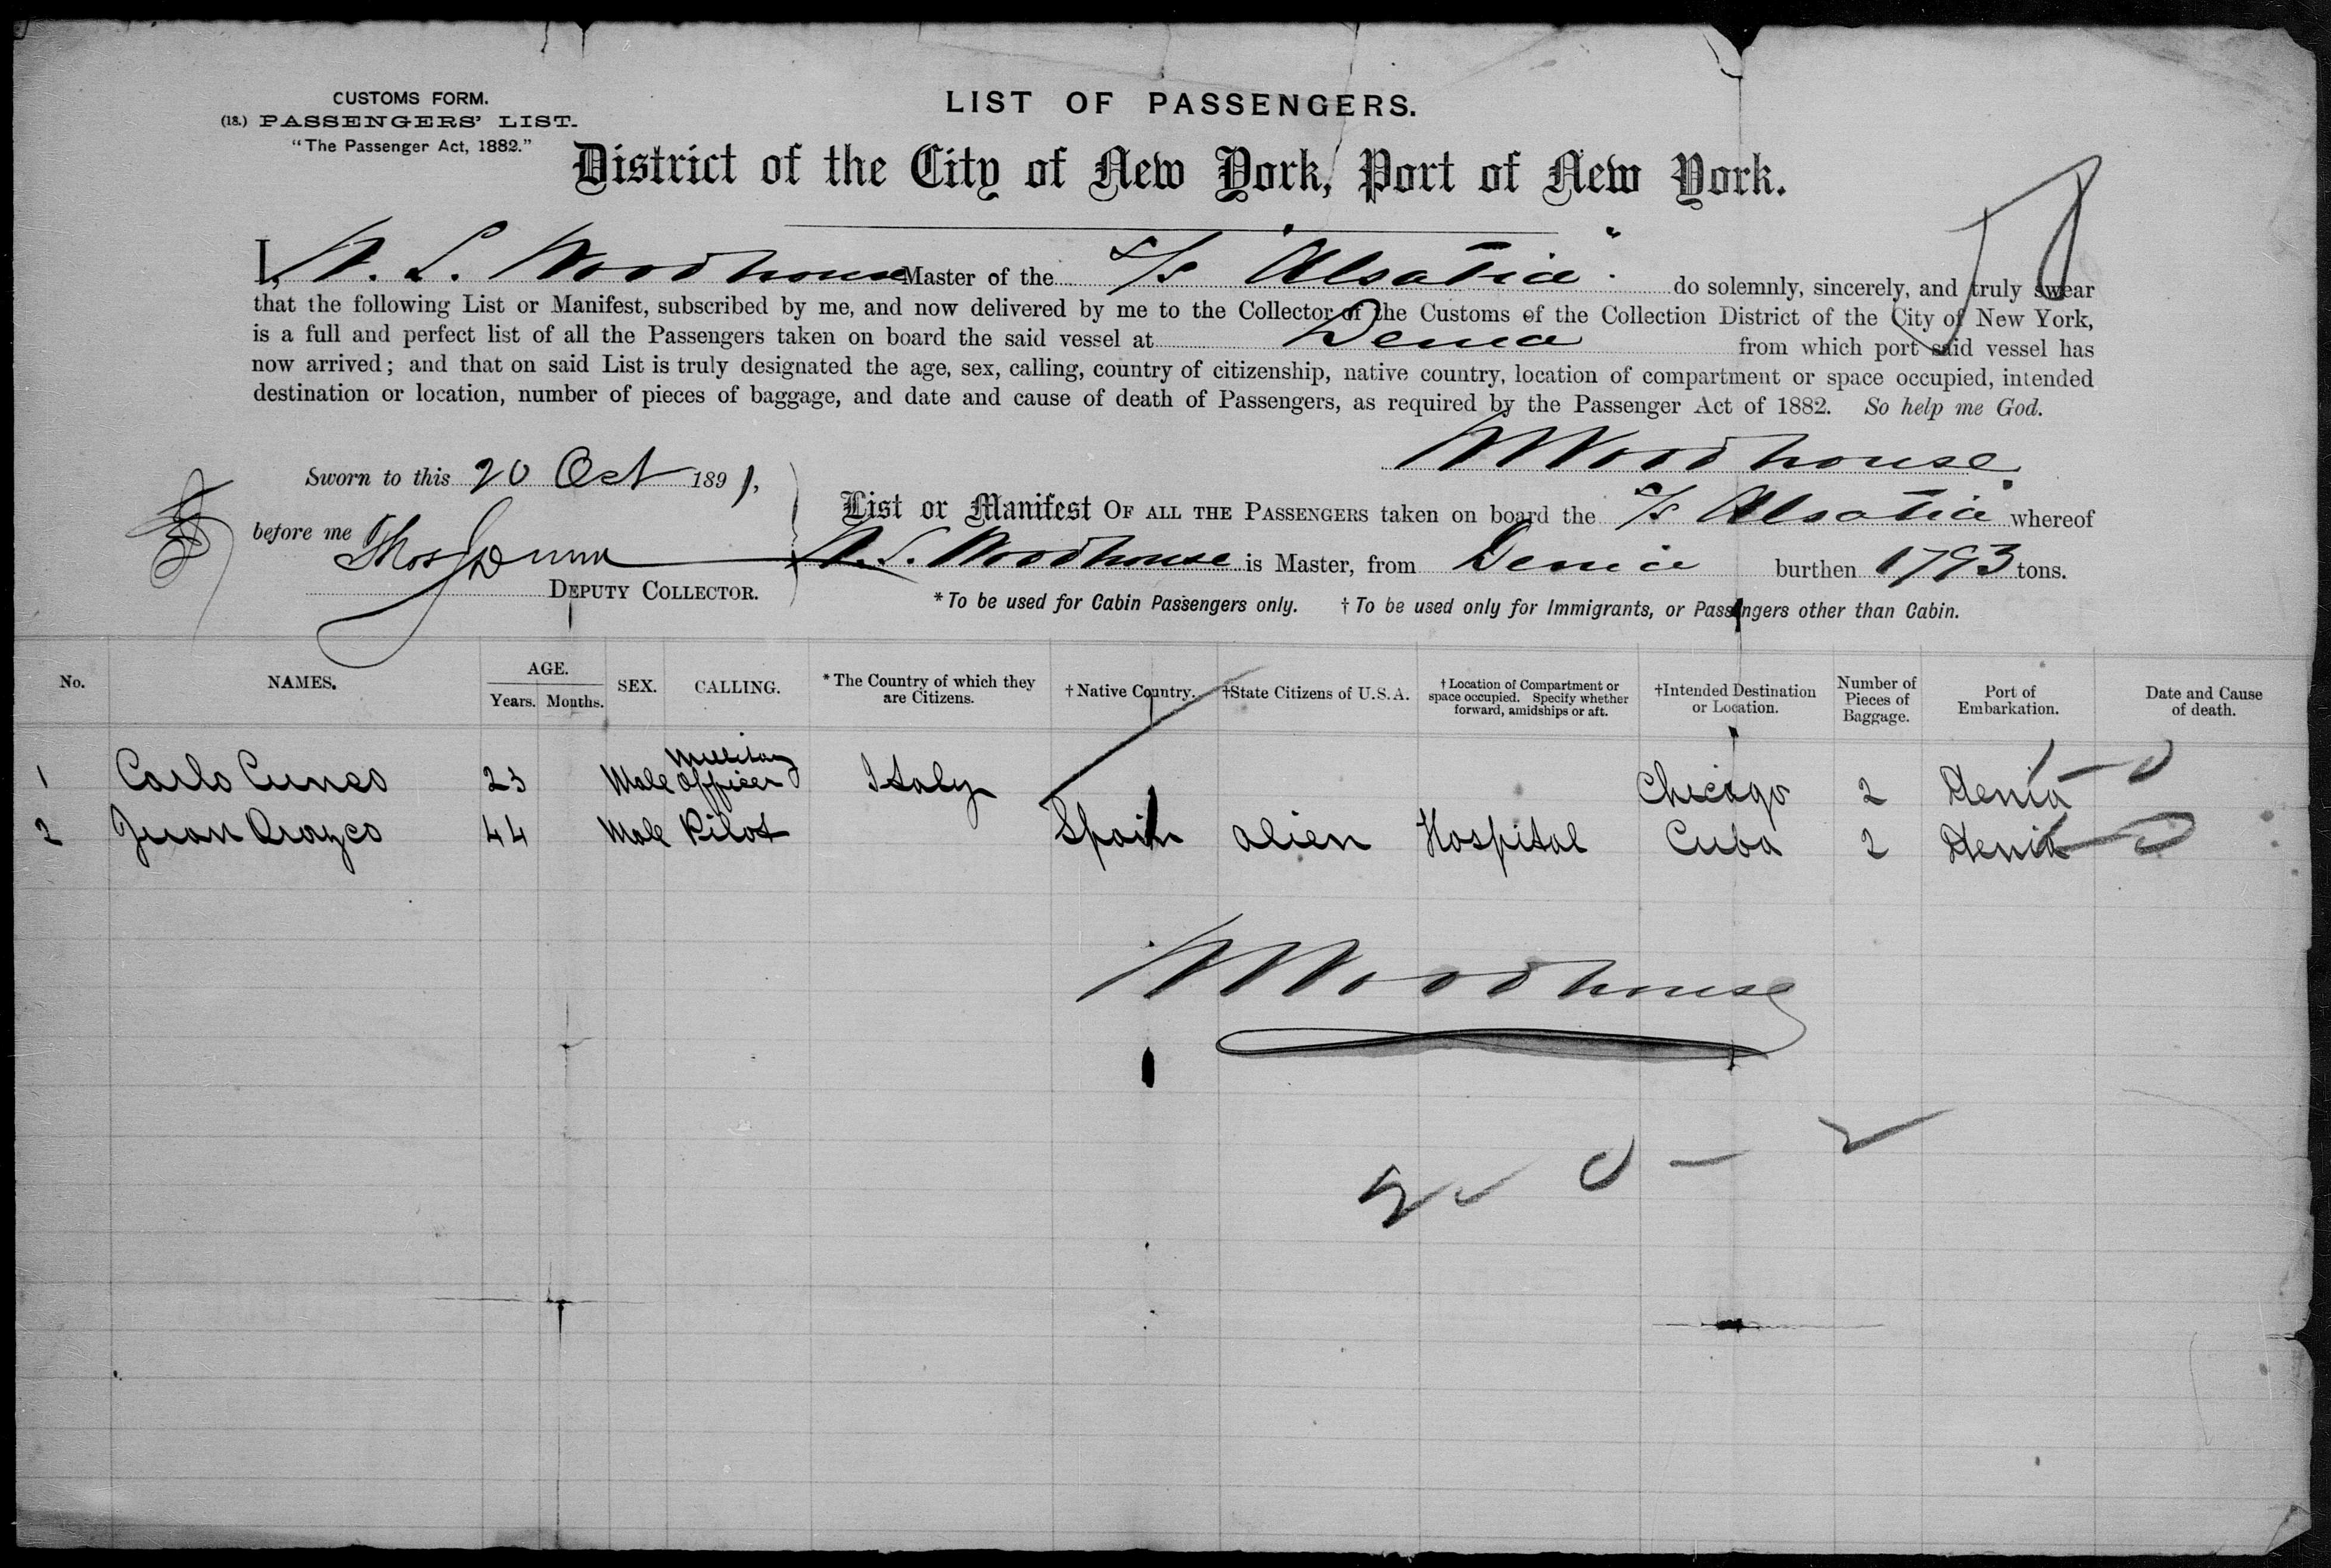 CUSTOMS FORM.
(18.) PASSENGERS' LIST.
"The Passenger Act, 1882."
LIST OF PASSENGERS.
District of the City of New York, Port of New York.
I, W. S. Woodhouse Master of the S/S "Alsatia" do solemnly, sincerely, and truly swear
that the following List or Manifest, subscribed by me, and now delivered by me to the Collector of the Customs of the Collection District of the City of New York,
is a full and perfect list of all the Passengers taken on board the said vessel at Denia from which port said vessel has
now arrived; and that on said List is truly designated the age, sex, calling, country of citizenship, native country, location of compartment or space occupied, intended
destination or location, number of pieces of baggage, and date and cause of death of Passengers, as required by the Passenger Act of 1882. So help me God.
Woodhouse
Sworn to this 20 Oct 1891,
before me Thos Dunn
DEPUTY COLLECTOR.
List or Manifest OF ALL THE PASSENGERS taken on board the S/S Alsatia whereof
W. S. Woodhouse is Master, from Denia burthen 1793 tons.
* To be used for Cabin Passengers only. † To be used only for Immigrants, or Passengers other than Cabin.
No. NAMES. AGE. Years. Months. SEX. CALLING. * The Country of which they are Citizens. † Native Country. †State Citizens of U.S.A. † Location of Compartment or space occupied. Specify whether forward, amidships or aft. †Intended Destination or Location. Number of Pieces of Baggage. Port of Embarkation. Date and Cause of death.
1 Carlo Cuneo 23 Male Military Officer Italy Chicago 2 Denia
2 Juan Orozco 44 Male Pilot Spain alien Hospital Cuba 2 Denia
Woodhouse